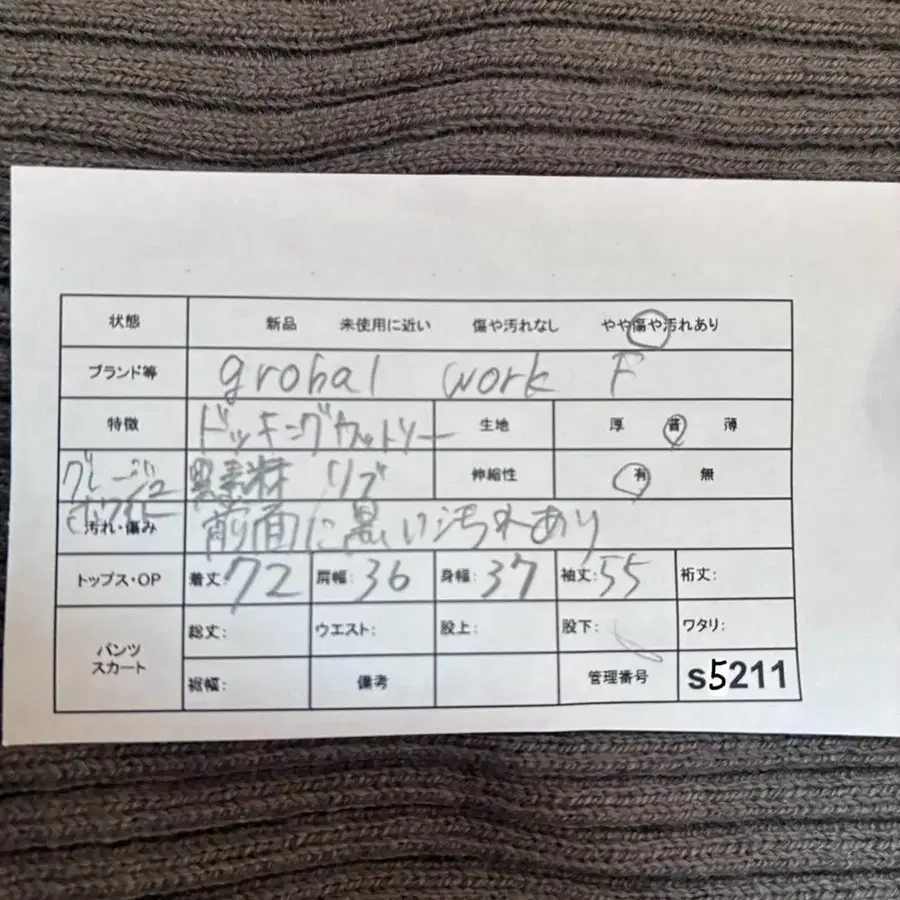 状態 新品 未使用に近い 傷や汚れなし やや傷や汚れあり
ブランド等 grobal work F
特徴 ドッキングカットソー 生地 厚 普 薄
グレージュ 異素材 リブ 伸縮性 有 無
ホワイト
汚れ・傷み 前面に黒い汚れあり
トップス・OP 着丈:72 肩幅:36 身幅:37 袖丈:55 裄丈:
パンツ スカート 総丈: ウエスト: 股上: 股下: ワタリ:
裾幅: 備考 管理番号 s5211